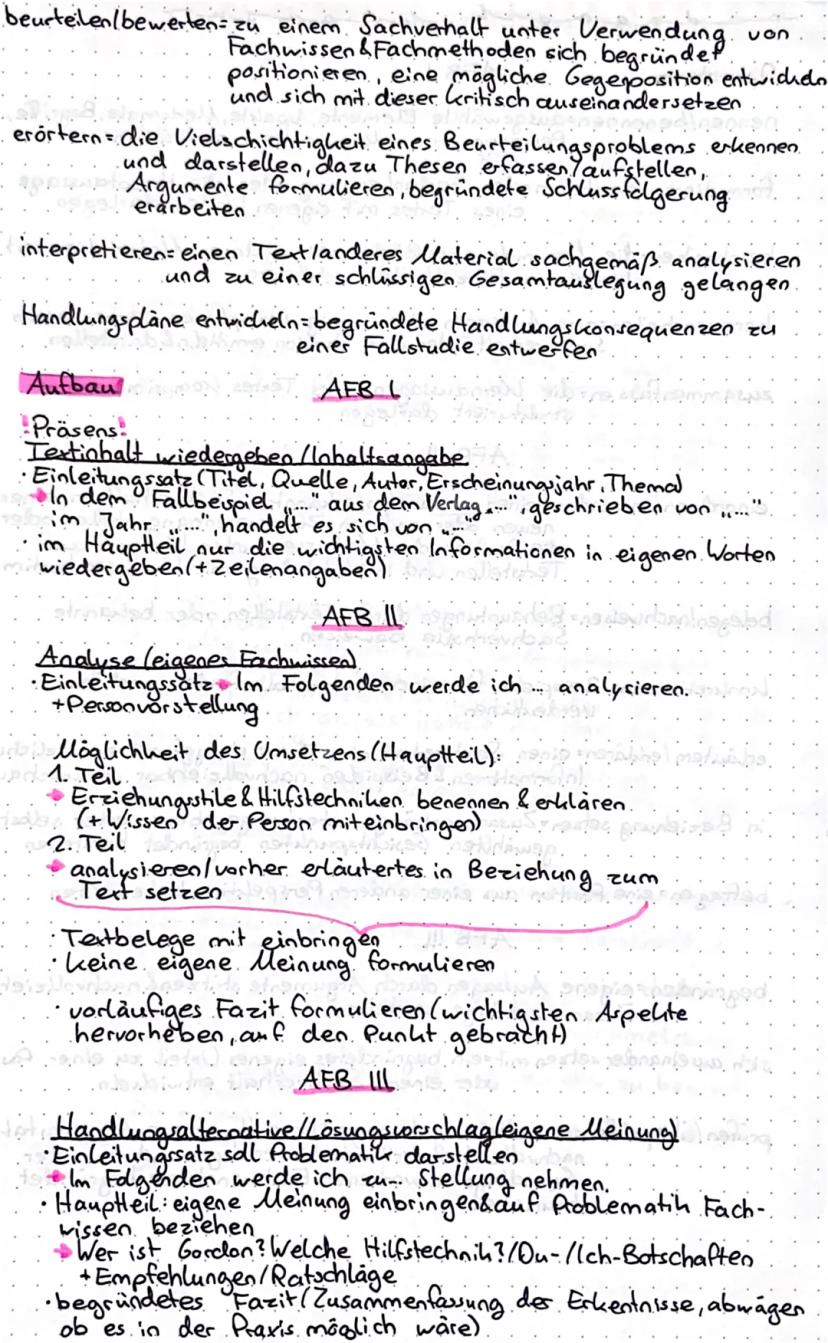 beurteilen/bewerten= zu einem Sachverhalt unter Verwendung von
Fachwissen & Fachmethoden sich begründet
positionieren, eine mögliche Gegenposition entwickeln
und sich mit dieser kritisch auseinandersetzen
erörtern= die Vielschichtigkeit eines Beurteilungsproblems erkennen
und darstellen, dazu Thesen erfassen/aufstellen,
Argumente formulieren, begründete Schlussfolgerung
erarbeiten
interpretieren= einen Text/anderes Material sachgemäß analysieren
und zu einer schlüssigen Gesamtauslegung gelangen
Handlungspläne entwickeln= begründete Handlungskonsequenzen zu
einer Fallstudie entwerfen
Aufbau AFB I
!Präsens!
Textinhalt wiedergeben/Inhaltsangabe
· Einleitungssatz (Titel, Quelle, Autor, Erscheinungsjahr, Thema)
→ In dem Fallbeispiel „..." aus dem Verlag „...", geschrieben von „..."
im Jahr „...", handelt es sich von „..."
· im Hauptteil nur die wichtigsten Informationen in eigenen Worten
wiedergeben (+ Zeilenangaben)
AFB II
Analyse (eigenes Fachwissen)
· Einleitungssatz → Im Folgenden werde ich ... analysieren.
+ Personvorstellung
Möglichkeit des Umsetzens (Hauptteil):
1. Teil
→ Erziehungsstile & Hilfstechniken benennen & erklären
(+ Wissen der Person miteinbringen)
2. Teil
→ analysieren/vorher erläutertes in Beziehung zum
Text setzen
· Textbelege mit einbringen
· keine eigene Meinung formulieren
· vorläufiges Fazit formulieren (wichtigsten Aspekte
hervorheben, auf den Punkt gebracht)
AFB III
Handlungsalternative/Lösungsvorschlag (eigene Meinung)
· Einleitungssatz soll Problematik darstellen
→ Im Folgenden werde ich zu ... Stellung nehmen.
· Hauptteil: eigene Meinung einbringen & auf Problematik Fach-
wissen beziehen
→ Wer ist Gordon? Welche Hilfstechnik?/Du-/Ich-Botschaften
+ Empfehlungen/Ratschläge
· begründetes Fazit (Zusammenfassung der Erkentnisse, abwägen
ob es in der Praxis möglich wäre)